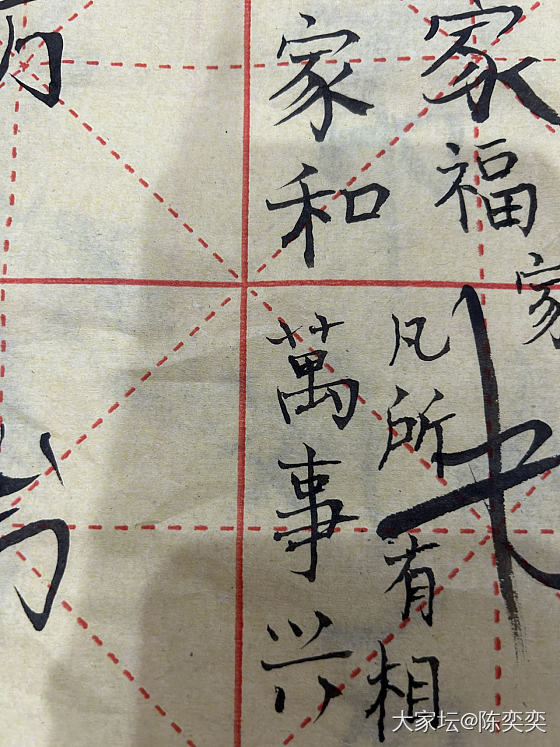 家福
家
凡所有相
家和萬事兴
大家坛@陈奕奕